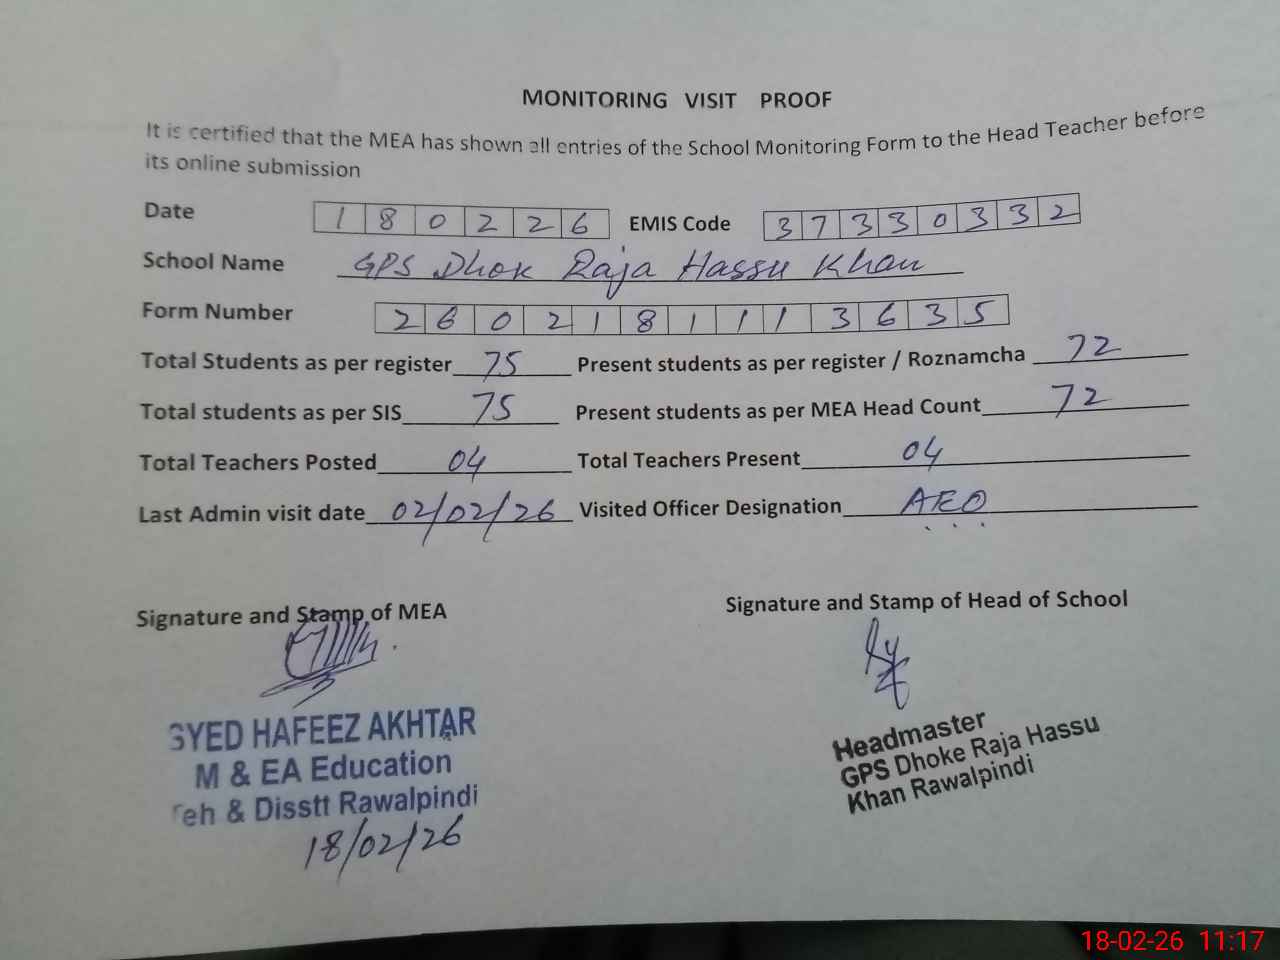 MONITORING VISIT PROOF
It is certified that the MEA has shown all entries of the School Monitoring Form to the Head Teacher before
its online submission
Date 180226 EMIS Code 37330332
School Name GPS Dhok Raja Hassu Khan
Form Number 2602181113635
Total Students as per register 75 Present students as per register / Roznamcha 72
Total students as per SIS 75 Present students as per MEA Head Count 72
Total Teachers Posted 04 Total Teachers Present 04
Last Admin visit date 02/02/26 Visited Officer Designation AEO
Signature and Stamp of MEA Signature and Stamp of Head of School
SYED HAFEEZ AKHTAR
M & EA Education
Teh & Disstt Rawalpindi
18/02/26
Headmaster
GPS Dhoke Raja Hassu
Khan Rawalpindi
18-02-26 11:17